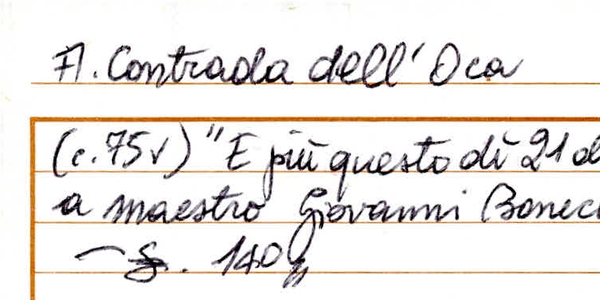 A. Contrada dell'Oca
(c.75v) "E più questo dì 21 d
a maestro Giovanni Bonec
140